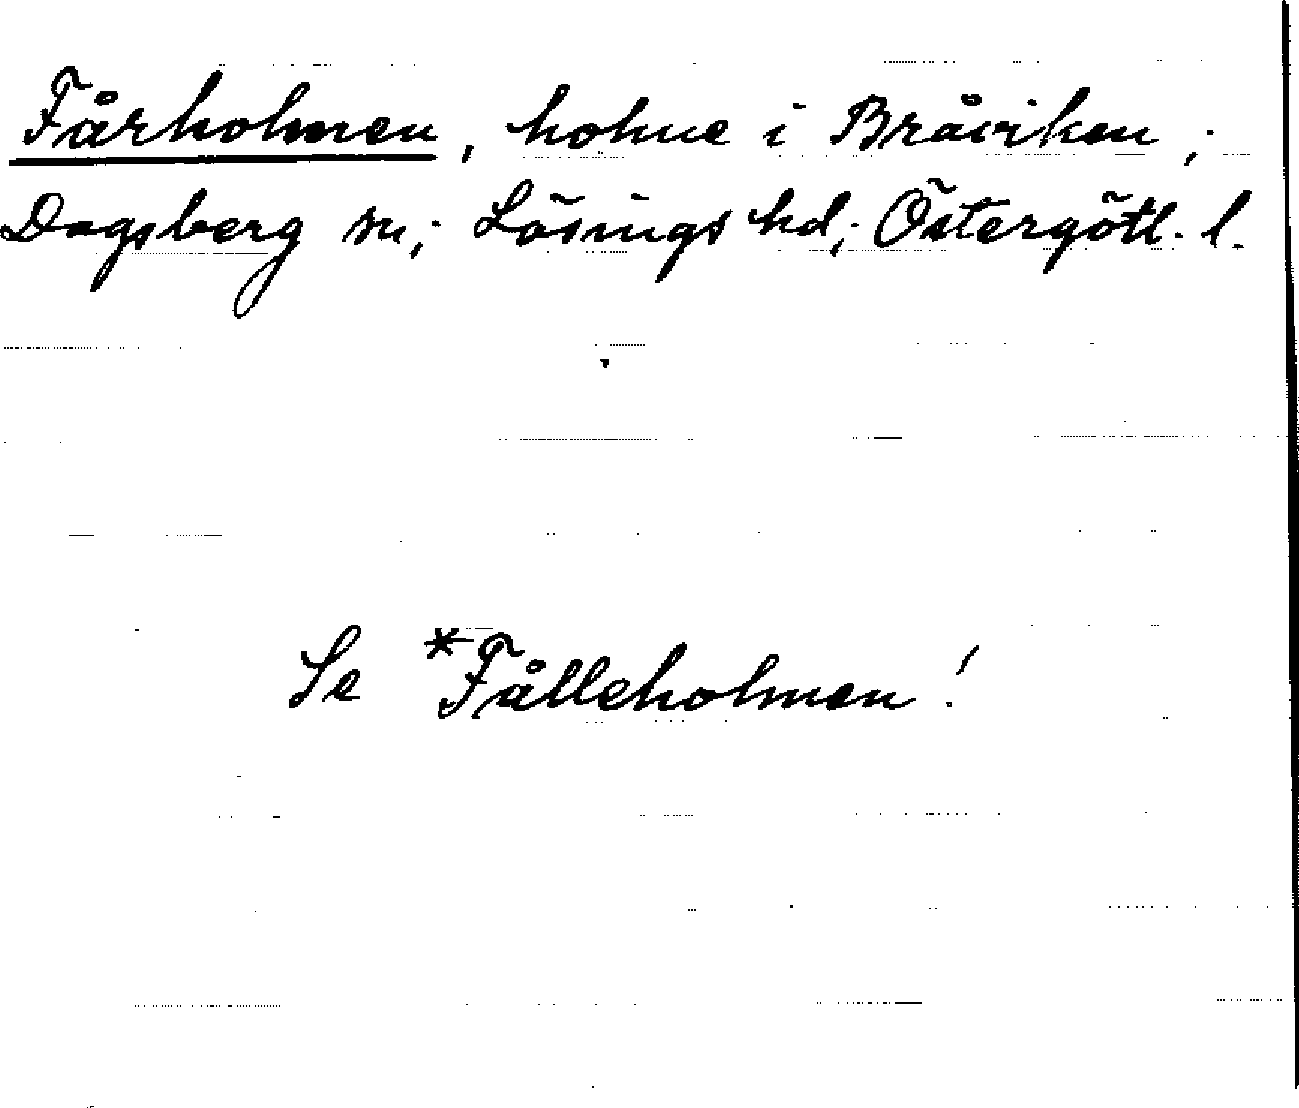 Fårholmen, holme i Bråviken;
Dagsberg sn; Lösings hd; Östergötl. l.
Se *Fålleholmen!